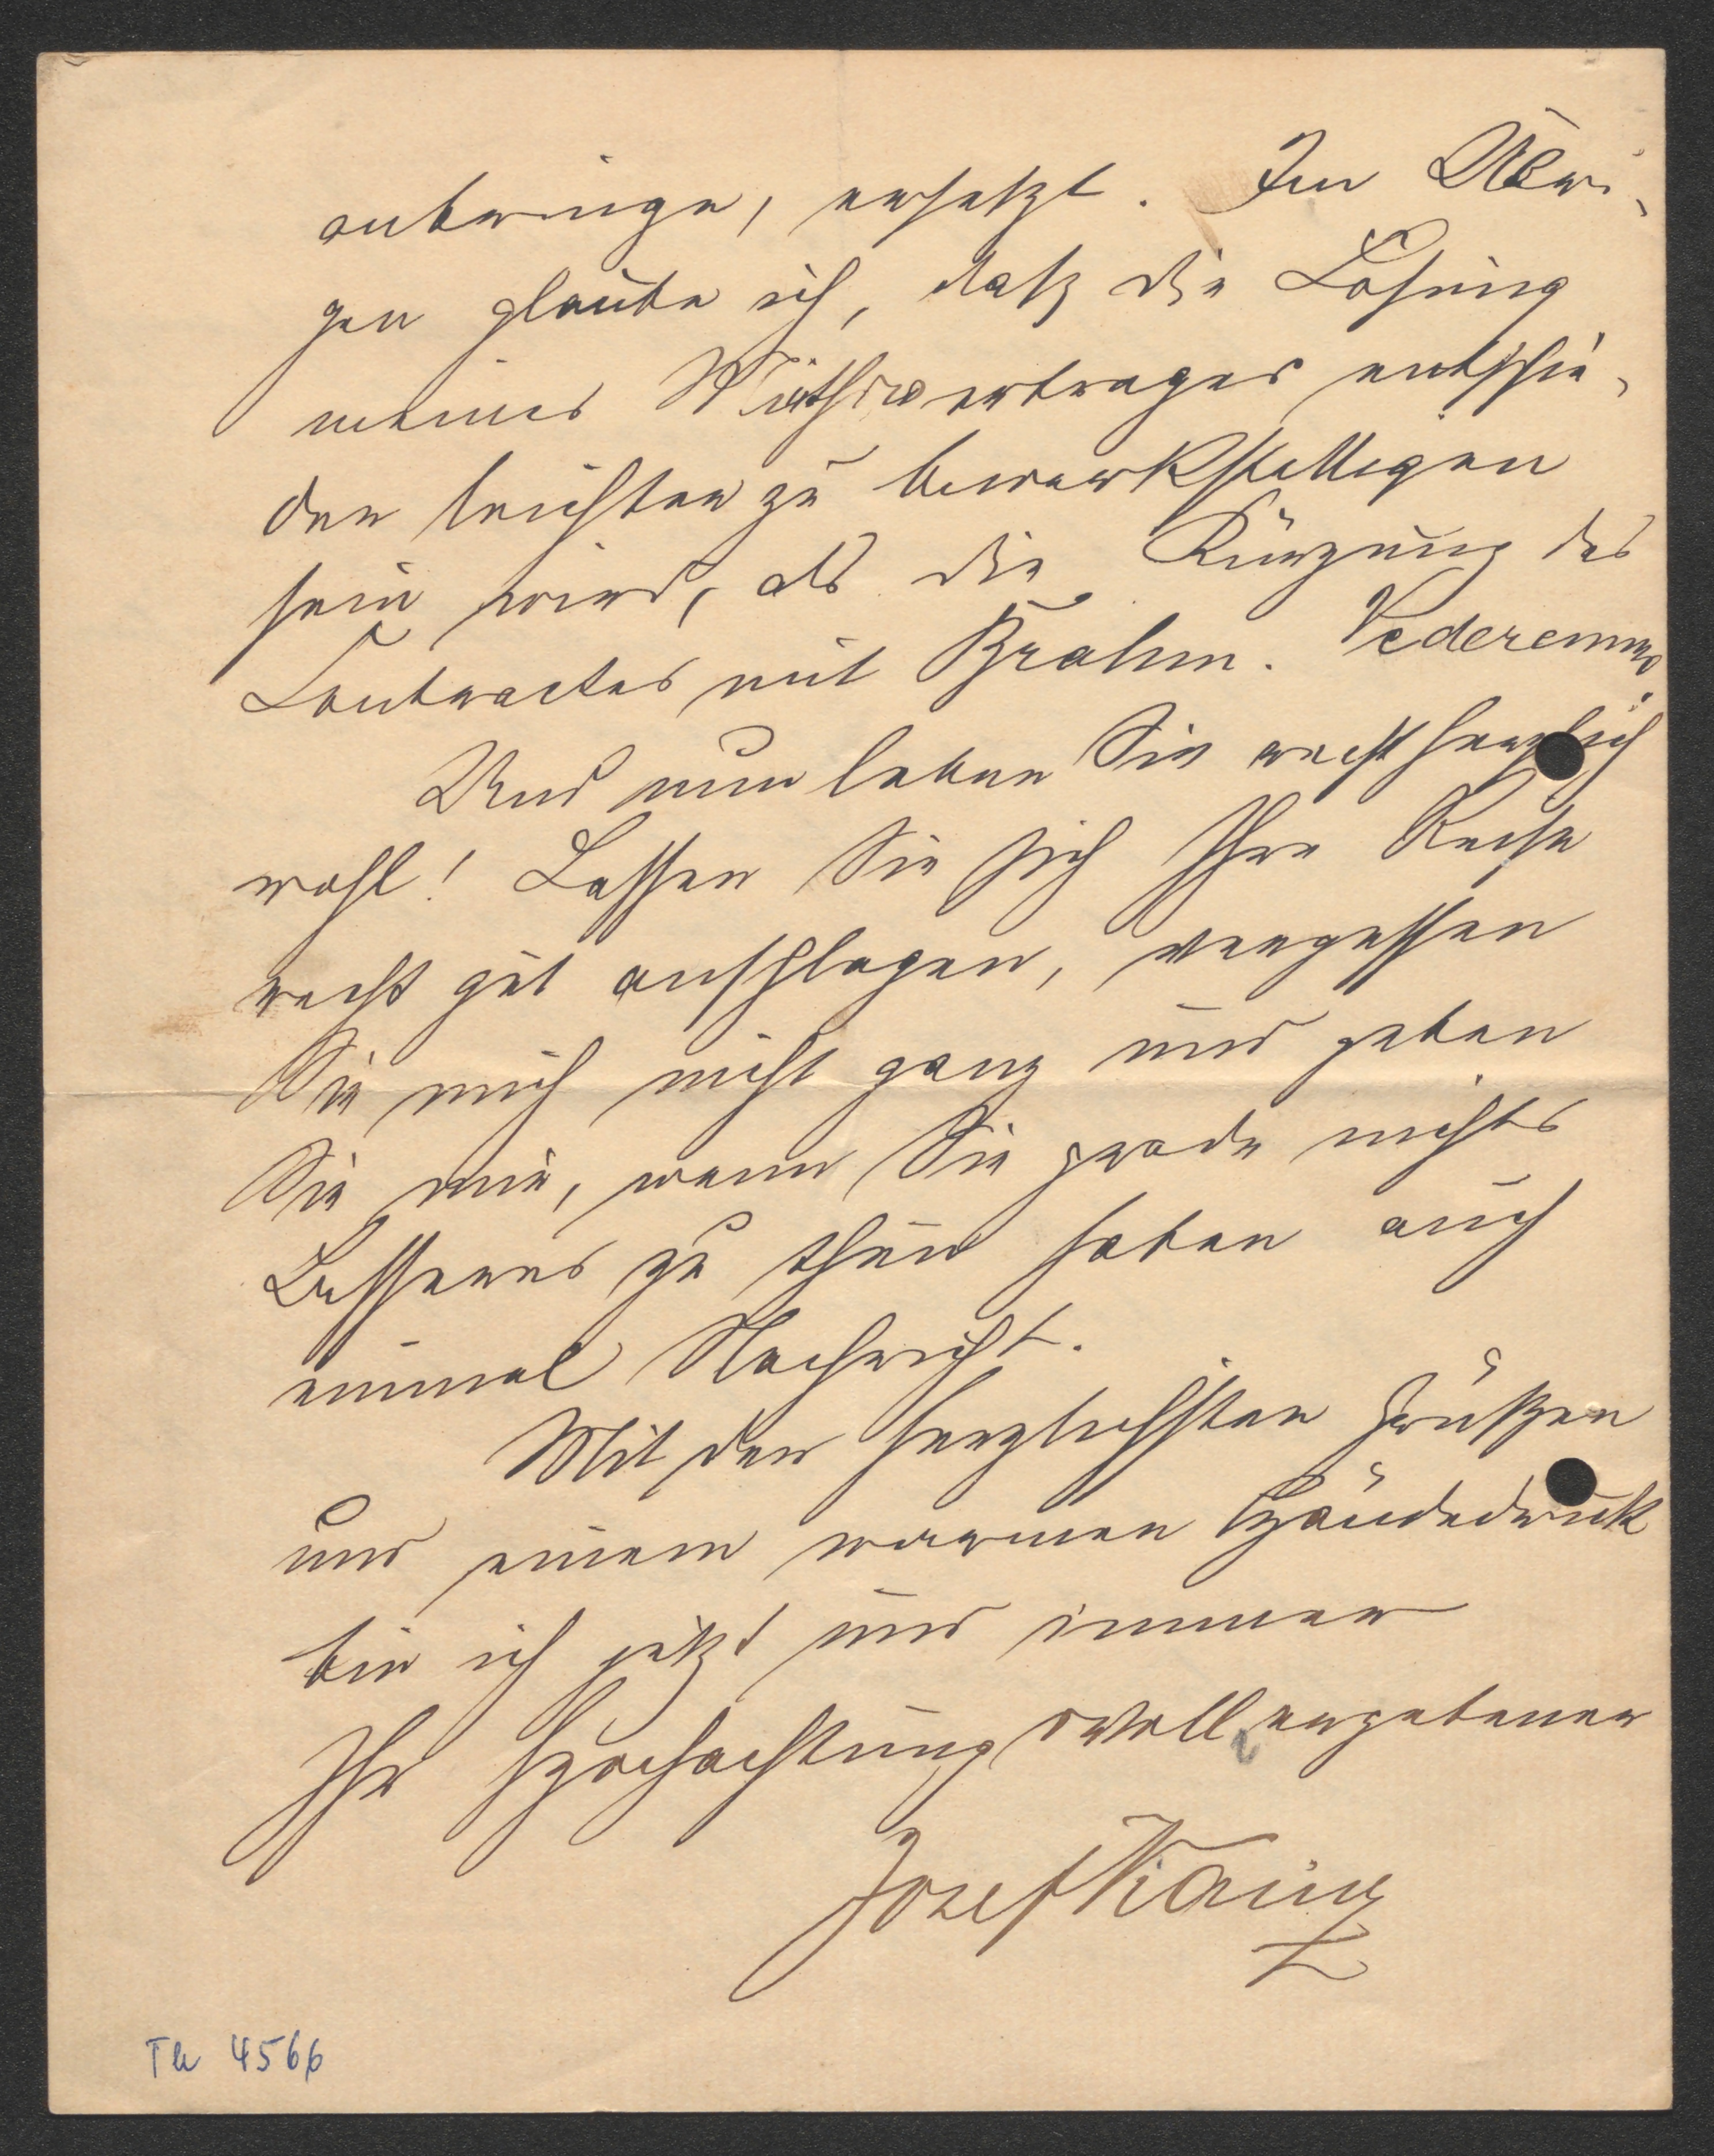 anbringe, ersetzt. Im Übri-
gen glaube ich, daß die Lösung
meines Miethsvertrages entschie-
den leichter zu bewerkstelligen
sein wird, als die Kürzung des
Contractes mit Brahm. Vederemmo
Und nun leben Sie recht herzlich
wohl! Lassen Sie sich Ihre Reise
recht gut anschlagen, vergessen
Sie mich nicht ganz und geben
Sie mir, wenn Sie grade nichts
Besseres zu thun haben auch
einmal Nachricht.
Mit den herzlichsten Grüßen
und einem warmen Händedruck
bin ich jetzt und immer
Ihr hochachtungsvoll ergebener
Josef Kainz
Th 4566